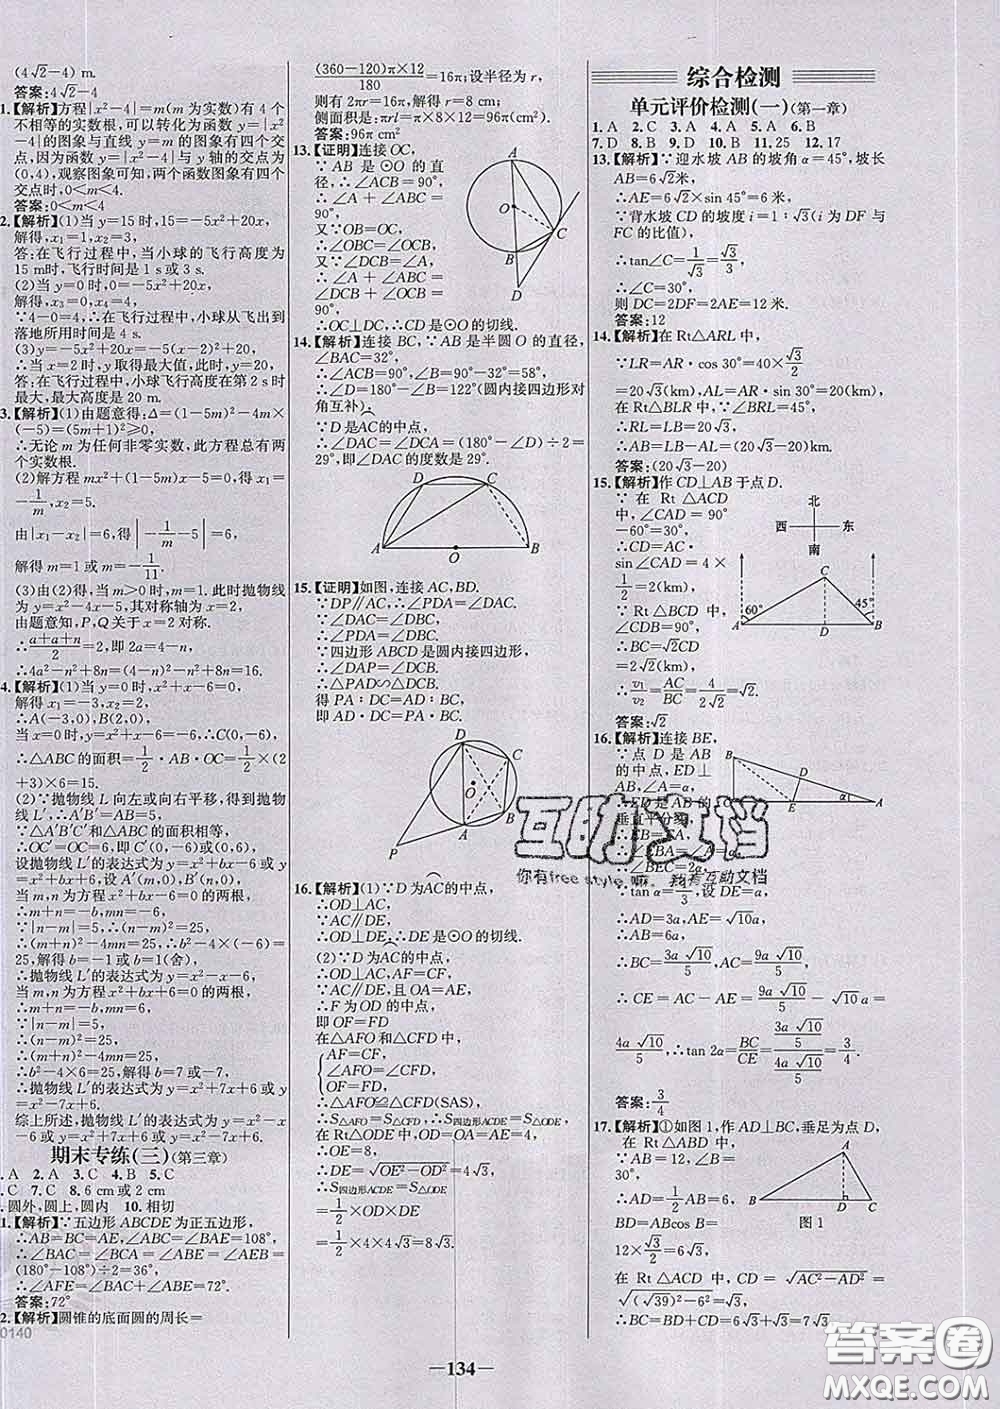 (4√2-4) m.
答案:4√2-4
1.【解析】方程|x²-4|=m(m为实数)有4个
不相等的实数根,可以转化为函数y=|x²
-4|的图象与直线y=m的图象有四个交
点,因为函数y=|x²-4|与y轴的交点为
(0,4),观察图象可知,两个函数图象有四个
交点时,0<m<4.
答案:0<m<4
2.【解析】(1)当y=15时,15=-5x²+20x,
解得,x₁=1,x₂=3,
答:在飞行过程中,当小球的飞行高度为
15 m时,飞行时间是1 s或3 s.
(2)当y=0时,0=-5x²+20x,
解得,x₃=0,x₄=4,
∵4-0=4,∴在飞行过程中,小球从飞出到
落地所用时间是4 s.
(3)y=-5x²+20x=-5(x-2)²+20,
∴当x=2时,y取得最大值,此时,y=20,
答:在飞行过程中,小球飞行高度在第2 s时
最大,最大高度是20 m.
3.【解析】(1)由题意得:Δ=(1-5m)²-4m×
(-5)=(5m+1)²≥0,
∴无论m为任何非零实数,此方程总有两
个实数根.
(2)解方程mx²+(1-5m)x-5=0,得x₁=
-1/m,x₂=5.
由|x₁-x₂|=6,得|-1/m-5|=6,
解得m=1或m=-1/11.
(3)由(2)得,当m>0时,m=1,此时抛物线
为y=x²-4x-5,其对称轴为x=2,
由题意知,P,Q关于x=2对称.
∴(a+a+n)/2=2,即2a=4-n,
∴4a²-n²+8n=(4-n)²-n²+8n=16.
4.【解析】(1)当y=0时,x²+x-6=0,
解得x₁=-3,x₂=2,
∴A(-3,0),B(2,0),
当x=0时,y=-6,∴C(0,-6),
∴△ABC的面积=1/2·AB·OC=1/2×(2
+3)×6=15.
(2)∵抛物线L向左或向右平移,得到抛物
线L′,∴A′B′=AB=5,
∵△A′B′C′和△ABC的面积相等,
∴OC′=OC=6,即C′(0,-6)或(0,6),
设抛物线L′的表达式为y=x²+bx-6或y
=x²+bx+6,设A′(m,0),B′(n,0),
当m,n为方程x²+bx-6=0的两根,
∴m+n=-b,mn=-6,
∵|n-m|=5,∴(n-m)²=25,
∴(m+n)²-4mn=25,∴b²-4×(-6)=
25,解得b=-1或b=1(舍),
∴抛物线L′的表达式为y=x²-x-6.
当m,n为方程x²+bx+6=0的两根,
∴m+n=-b,mn=6,
∵|n-m|=5,
∴(n-m)²=25,
∴(m+n)²-4mn=25,
∴b²-4×6=25,解得b=7或b=-7,
∴抛物线L′的表达式为y=x²+7x+6或y
=x²-7x+6.
综上所述,抛物线L′的表达式为y=x²-x
-6或y=x²+7x+6或y=x²-7x+6.
期末专练(三)(第三章)
A 2.A 3.C 4.B 5.C
C 7.C 8.6 cm或2 cm
圆外,圆上,圆内 10.相切
1.【解析】∵五边形ABCDE为正五边形,
∴AB=BC=AE,∠ABC=∠BAE=108°,
∴∠BAC=∠BCA=∠ABE=∠AEB=
(180°-108°)÷2=36°,
∴∠AFE=∠BAC+∠ABE=72°.
答案:72°
2.【解析】圆锥的底面圆的周长=
0140
(360-120)π×12/180=16π;设半径为r,
则有2πr=16π,解得r=8(cm);
侧面积=πrl=π×8×12=96π(cm²).
答案:96π cm²
13.【证明】连接OC,
∵AB是⊙O的直径,
∴∠ACB=90°,
∴∠A+∠ABC=90°,
又∵OB=OC,
∴∠OBC=∠OCB,
又∵∠DCB=∠A,
∴∠A+∠ABC=
∠DCB+∠OCB=90°,
∴OC⊥DC,∴CD是⊙O的切线.
A
O
C
B
D
14.【解析】连接BC,∵AB是半圆O的直径,
∠BAC=32°,
∴∠ACB=90°,∠B=90°-32°=58°,
∴∠D=180°-∠B=122°(圆内接四边形对
角互补),
∵D是AC的中点,
∴∠DAC=∠DCA=(180°-∠D)÷2=
29°,即∠DAC的度数是29°.
D C
A O B
15.【证明】如图,连接AC,BD.
∵DP∥AC,∴∠PDA=∠DAC.
∵∠DAC=∠DBC,
∴∠PDA=∠DBC.
∵四边形ABCD是圆内接四边形,
∴∠DAP=∠DCB.
∴△PAD∽△DCB.
得PA:DC=AD:BC,
即AD·DC=PA·BC.
D
C
O
A B
P
16.【解析】(1)∵D为AC的中点,
∴OD⊥AC,
∵AC∥DE,
∴OD⊥DE,∴DE是⊙O的切线.
(2)∵D为AC的中点,
∴OD⊥AC,AF=CF,
∵AC∥DE,且OA=AE,
∴F为OD的中点,
即OF=FD
在△AFO和△CFD中,
AF=CF,
∠AFO=∠CFD,
OF=FD
∴△AFO≌△CFD(SAS),
∴S△AFO=S△CFD,∴S四边形ACDE=S△ODE
在Rt△ODE中,OD=OA=AE=4,
∴OE=8,
∴DE=√(OE²-OD²)=4√3,
∴S四边形ACDE=S△ODE
=1/2×OD×DE
=1/2×4×4√3=8√3.
综合检测
单元评价检测(一)(第一章)
1.A 2.C 3.A 4.A 5.A 6.B
7.D 8.B 9.B 10.B 11.25 12.17
13.【解析】∵迎水坡AB的坡角α=45°,坡长
AB=6√2米,
∴AE=6√2×sin 45°=6(米),
∵背水坡CD的坡度i=1:√3(i为DF与
FC的比值),
∴tan∠C=1/√3=√3/3,
∴∠C=30°,
则DC=2DF=2AE=12米.
答案:12
14.【解析】在Rt△ARL中,
∵LR=AR·cos 30°=40×√3/2
=20√3(km),AL=AR·sin 30°=20(km),
在Rt△BLR中,∵∠BRL=45°,
∴RL=LB=20√3,
∴AB=LB-AL=(20√3-20)km.
答案:(20√3-20)
15.【解析】作CD⊥AB于点D.
∵在Rt△ACD
中,∠CAD=90°
-60°=30°,
∴CD=AC·sin30°=4×
1/2=2(km),
∵Rt△BCD中,
∠CDB=90°,
∴BC=√2CD
=2√2(km),
∴v₁/v₂=AC/BC=4/(2√2)=√2.
答案:√2
北
西 东
南
C
60° 45°
A D B
16.【解析】连接BE,
∵点D是AB
的中点,ED⊥
AB,
∴ED是AB的
垂直平分线,
∴EB=EA,
∴∠BEC=2α,
∵tan α=1/3,设DE=a,
∴AD=3a,AE=√10a,
∴AB=6a,
∴BC=3a√10/5,AC=9a√10/5
∴CE=AC-AE=9a√10/5-√10a=
4a√10/5,∴tan 2α=BC/CE=(3a√10/5)/(4a√10/5)=3/4.
答案:3/4
B
D
C E α A
17.【解析】①如图1,作AD⊥BC,垂足为点D,
在Rt△ABD中,
∵AB=12,∠B=
30°,
∴AD=1/2AB=6,
BD=ABcos B=
12×√3/2=6√3,
在Rt△ACD中,CD=√(AC²-AD²)=
√((√39)²-6²)=√3,
∴BC=BD+CD=6√3+√3=7√3,
A
B D C
图1
互助文档
你有free style嘛。我有互助文档
答案圈
MXQE.COM
—134—